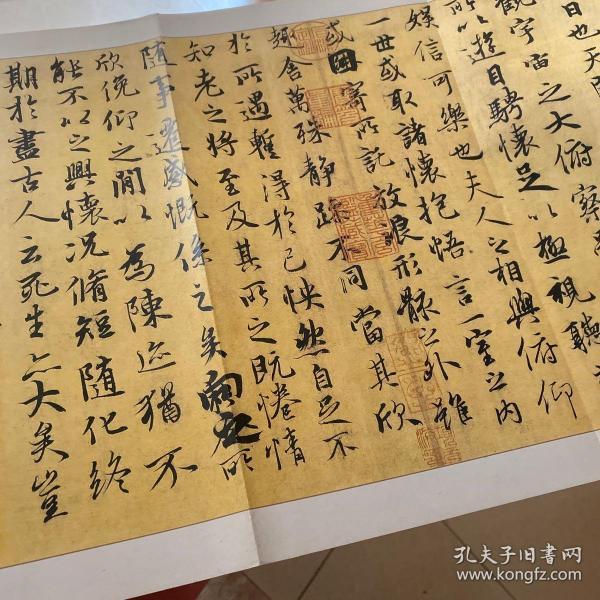 日也天
觀宇宙之大俯察
所以遊目騁懷足以極視聽
娛信可樂也夫人之相與俯仰
一世或取諸懷抱悟言一室之内
或因寄所託放浪形骸之外雖
趣舍萬殊靜躁不同當其欣
於所遇暫得於己怏然自足不
知老之將至及其所之既惓情
隨事遷感慨係之矣向之所
欣俛仰之間以為陳迹猶不
能不以之興懷況脩短隨化終
期於盡古人云死生亦大矣豈
孔夫子旧书网
www.kongfz.com